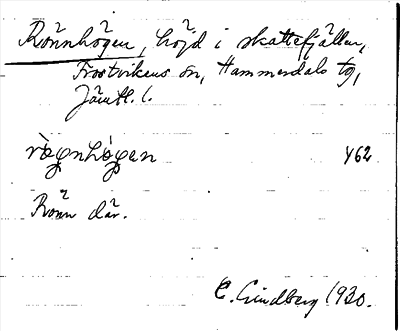 Rönnhögen, höjd i skattefjällen,
Frostvikens sn, Hammerdals tg,
Jämtl. l.
rògnhògen 462
Rönn där.
C. Lindberg 1930.